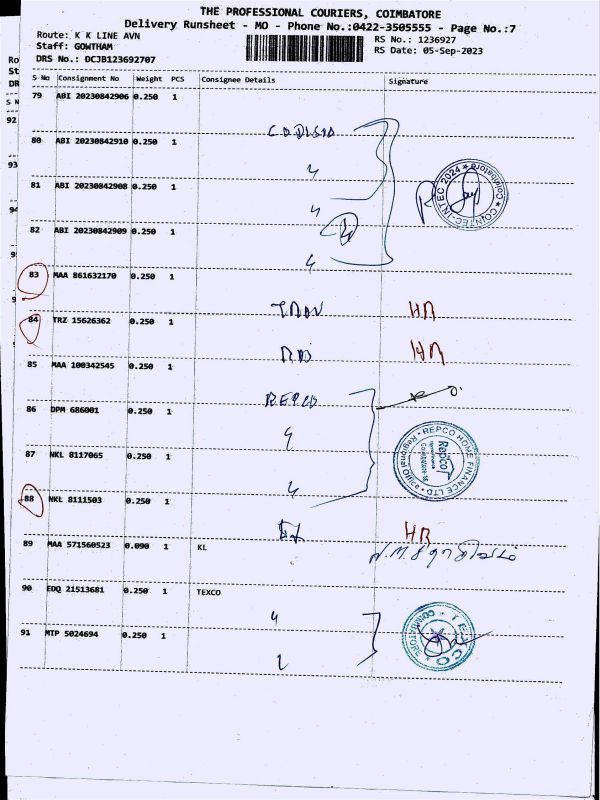 THE PROFESSIONAL COURIERS, COIMBATORE
Delivery Runsheet - MO - Phone No.:0422-3505555 - Page No.:7
Route: K K LINE AVN
Staff: GOWTHAM
DRS No.: DCJB123692707
RS No.: 1236927
RS Date: 05-Sep-2023
S No Consignment No Weight PCS Consignee Details Signature
79 ABI 20230842906 0.250 1
CODISIA
80 ABI 20230842910 0.250 1
81 ABI 20230842908 0.250 1
COINTEC-INTEC 2024 * Coimbatore *
82 ABI 20230842909 0.250 1
83 MAA 861632170 0.250 1
HR
84 TRZ 15626362 0.250 1
HR
85 MAA 100342545 0.250 1
REPCO
86 DPM 686001 0.250 1
87 NKL 8117065 0.250 1
REPCO HOME FINANCE LTD Regional Office
Repco
88 NKL 8111503 0.250 1
HR
89 MAA 571560523 0.090 1 KL
90 EDQ 21513681 0.250 1 TEXCO
91 MTP 5024694 0.250 1
TEXCO
Ro
St
DR
S N
92
93
94